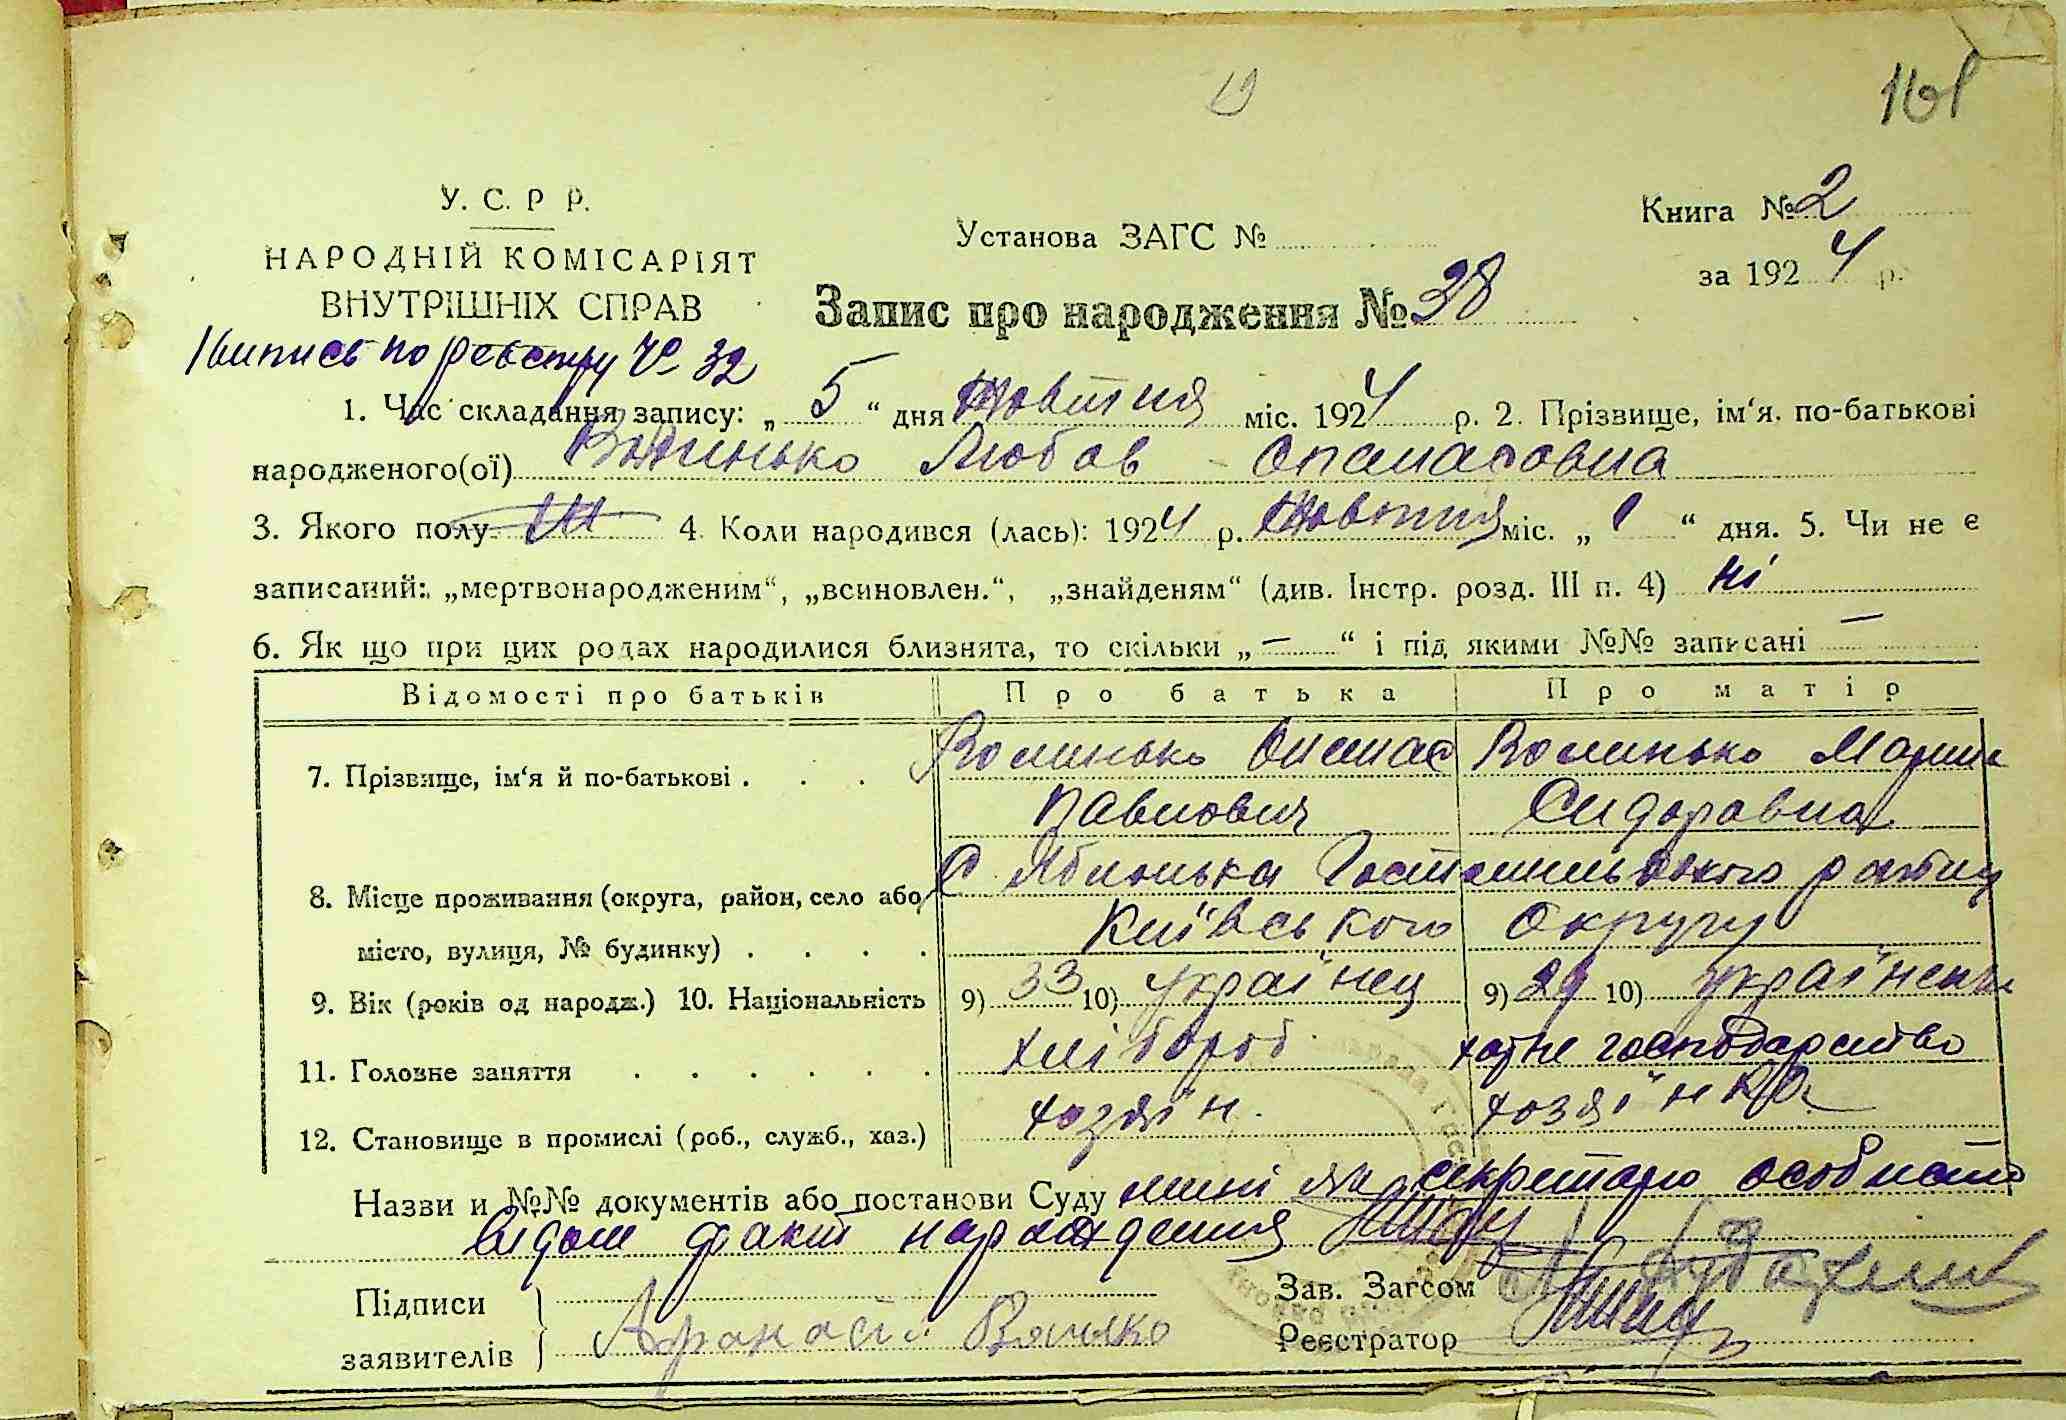 19
161
У. С. Р Р.
Книга № 2
Установа ЗАГС №
НАРОДНІЙ КОМІСАРІЯТ
за 1924 р.
ВНУТРІШНІХ СПРАВ
Запис про народження № 38
Випись по реєстру № 32
1. Час складання запису: „ 5 “ дня Жовтня міс. 1924 р. 2. Прізвище, ім‘я. по-батькові
народженого(ої) Волинько Любов Опанасовна
3. Якого полу Ж 4. Коли народився (лась): 1924 р. Жовтня міс. „ 1 “ дня. 5. Чи не є
записаний: „мертвонародженим“, „всиновлен.“, „знайденям“ (див. Інстр. розд. III п. 4) ні
6. Як що при цих родах народилися близнята, то скільки „ — “ і під якими №№ записані —
Відомості про батьків Про батька Про матір
7. Прізвище, ім‘я й по-батькові . . . Волинько Опанас Волинько Мария
Павлович Сидоравна
8. Місце проживання (округа, район, село або С Яблонька Гостомильського району
місто, вулиця, № будинку) . . . . Київського Округу
9. Вік (років од народж.) 10. Національність 9) 33 10) українец 9) 29 10) українка
11. Головне заняття . . . . . . хлібороб хатне господарство
12. Становище в промислі (роб., служб., хаз.) хозяїн. хозяїнка
Назви и №№ документів або постанови Суду мині як секретарю особисто
видом факт народження
Зав. Загсом
Підписи
Афанасій
Реєстратор
заявителів